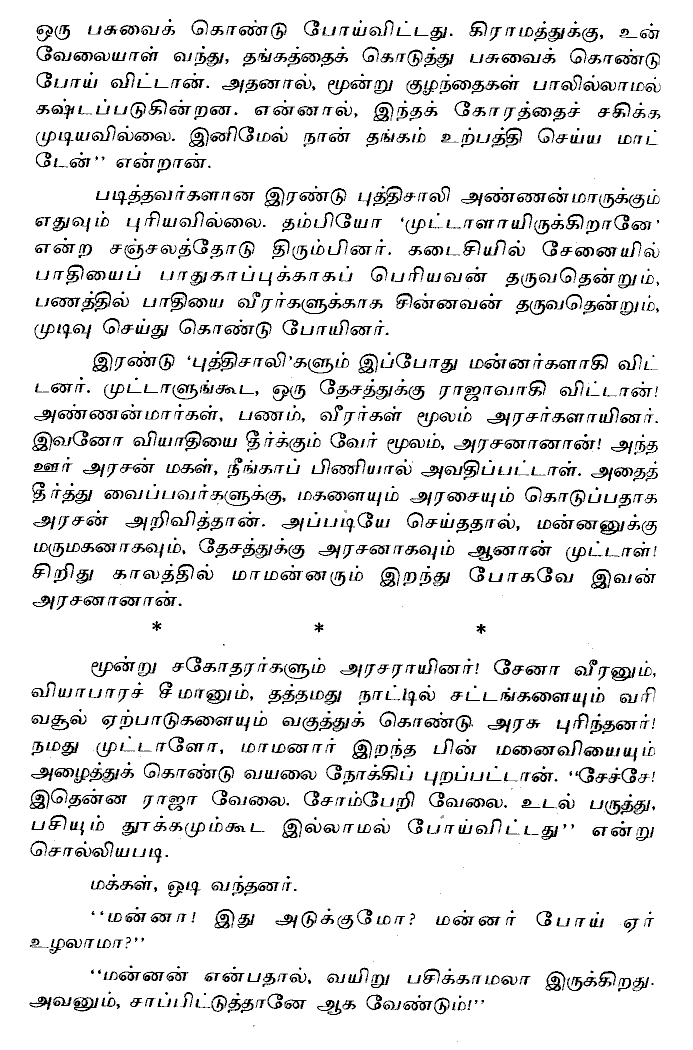 ஒரு பசுவைக் கொண்டு போய்விட்டது. கிராமத்துக்கு, உன்
வேலையாள் வந்து, தங்கத்தைக் கொடுத்து பசுவைக் கொண்டு
போய் விட்டான். அதனால், மூன்று குழந்தைகள் பாலில்லாமல்
கஷ்டப்படுகின்றன. என்னால், இந்தக் கோரத்தைச் சகிக்க
முடியவில்லை. இனிமேல் நான் தங்கம் உற்பத்தி செய்ய மாட்
டேன்’’ என்றான்.
படித்தவர்களான இரண்டு புத்திசாலி அண்ணன்மாருக்கும்
எதுவும் புரியவில்லை. தம்பியோ ‘முட்டாளாயிருக்கிறானே’
என்ற சஞ்சலத்தோடு திரும்பினர். கடைசியில் சேனையில்
பாதியைப் பாதுகாப்புக்காகப் பெரியவன் தருவதென்றும்,
பணத்தில் பாதியை வீரர்களுக்காக சின்னவன் தருவதென்றும்,
முடிவு செய்து கொண்டு போயினர்.
இரண்டு ‘புத்திசாலி’களும் இப்போது மன்னர்களாகி விட்
டனர். முட்டாளுங்கூட, ஒரு தேசத்துக்கு ராஜாவாகி விட்டான்!
அண்ணன்மார்கள், பணம், வீரர்கள் மூலம் அரசர்களாயினர்.
இவனோ வியாதியை தீர்க்கும் வேர் மூலம், அரசனானான்! அந்த
ஊர் அரசன் மகள், நீங்காப் பிணியால் அவதிப்பட்டாள். அதைத்
தீர்த்து வைப்பவர்களுக்கு, மகளையும் அரசையும் கொடுப்பதாக
அரசன் அறிவித்தான். அப்படியே செய்ததால், மன்னனுக்கு
மருமகனாகவும், தேசத்துக்கு அரசனாகவும் ஆனான் முட்டாள்!
சிறிது காலத்தில் மாமன்னரும் இறந்து போகவே இவன்
அரசனானான்.
* * *
மூன்று சகோதரர்களும் அரசராயினர்! சேனா வீரனும்,
வியாபாரச் சீமானும், தத்தமது நாட்டில் சட்டங்களையும் வரி
வசூல் ஏற்பாடுகளையும் வகுத்துக் கொண்டு. அரசு புரிந்தனர்!
நமது முட்டாளோ, மாமனார் இறந்த பின் மனைவியையும்
அழைத்துக் கொண்டு வயலை நோக்கிப் புறப்பட்டான். ‘‘சேச்சே!
இதென்ன ராஜா வேலை. சோம்பேறி வேலை. உடல் பருத்து,
பசியும் தூக்கமும்கூட இல்லாமல் போய்விட்டது’’ என்று
சொல்லியபடி.
மக்கள், ஓடி வந்தனர்.
‘‘மன்னா! இது அடுக்குமோ? மன்னர் போய் ஏர்
உழலாமா?’’
‘‘மன்னன் என்பதால், வயிறு பசிக்காமலா இருக்கிறது.
அவனும், சாப்பிட்டுத்தானே ஆக வேண்டும்!’’